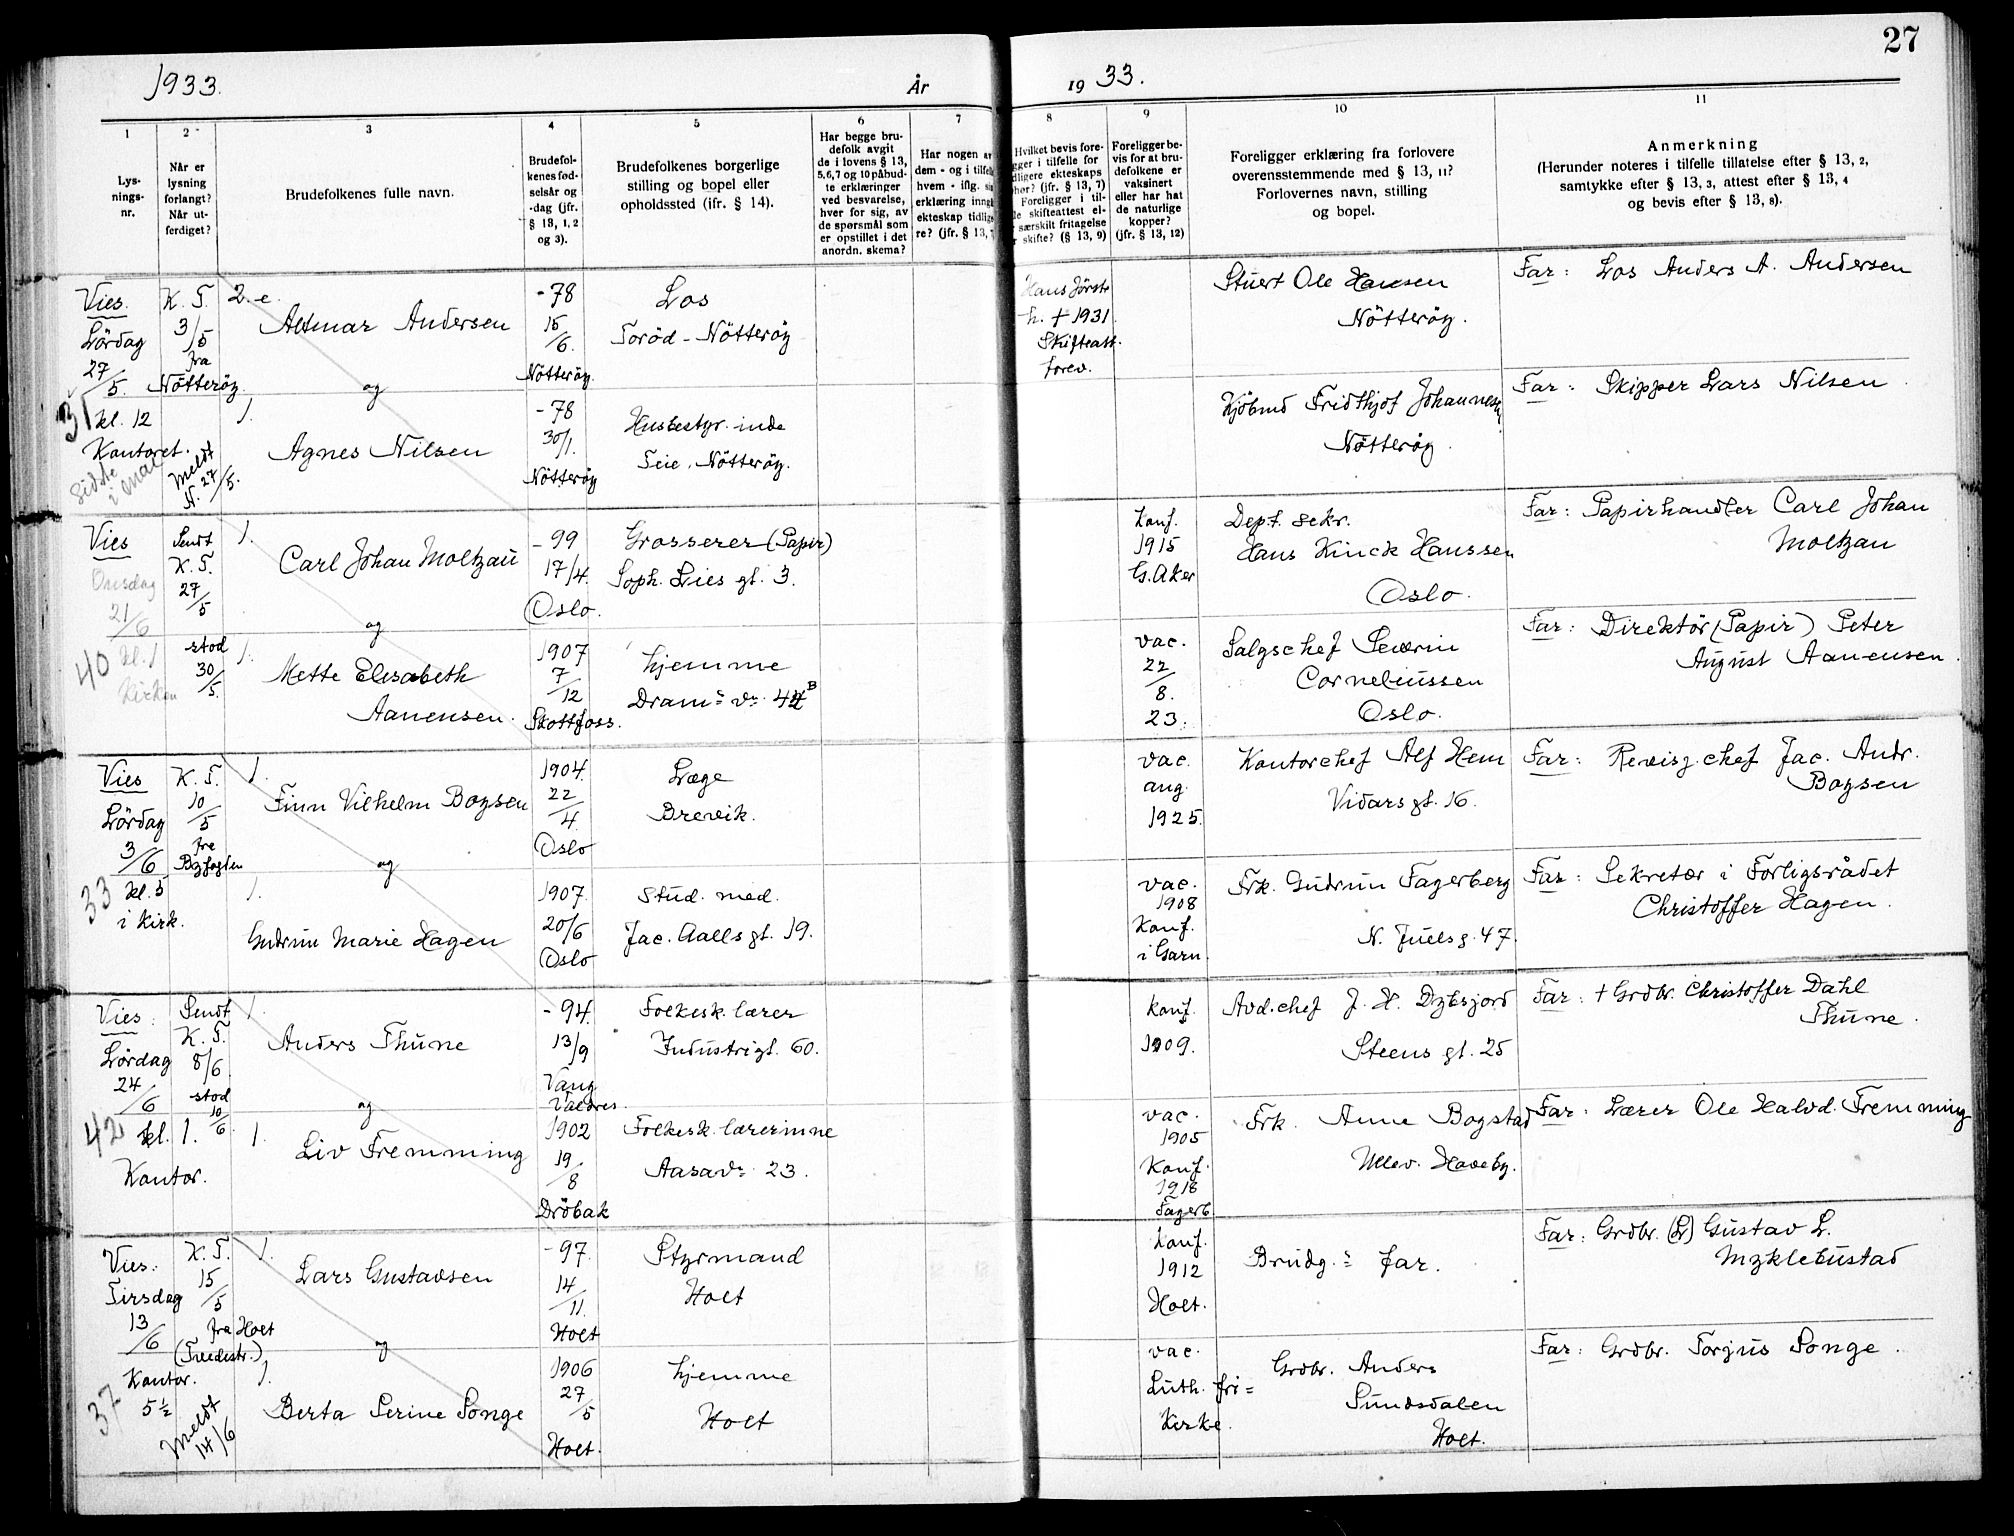 27
1933. År 19 33.
1
2
3
4
5
6
7
8
9
10
11
Lys-
nings-
nr.
Når er
lysning
forlangt?
Når ut-
ferdiget?
Brudefolkenes fulle navn.
Brudefol-
kenes fød-
selsår og
-dag (jfr.
§ 13, 1, 2
og 3).
Brudefolkenes borgerlige
stilling og bopel eller
opholdssted (ifr. § 14).
Har begge bru-
defolk avgit
de i lovens § 13,
5,6,7 og 10 påbud-
te erklæringer
ved besvarelse,
hver for sig, av
de spørsmål som
er opstillet i det
anordn. skema?
Har nogen av
dem - og i tilfelle
hvem - iflg.
erklæring inng
ekteskap tidlig
re? (jfr. § 13,
Hvilket bevis fore-
gger i tilfelle for
dligere ekteskaps
hør? (jfr. § 13, 7)
Foreligger i til-
de skifteattest el-
særskilt fritagelse
r skifte? (§ 13, 9)
Foreligger be-
vis for at bru-
defolkene er
vaksinert
eller har hat
de naturlige
kopper?
(jfr. § 13, 12)
Foreligger erklæring fra forlovere
overensstemmende med § 13, 11?
Forlovernes navn, stilling
og bopel.
Anmerkning
(Herunder noteres i tilfelle tillatelse efter § 13, 2,
samtykke efter § 13, 3, attest efter § 13, 4
og bevis efter § 13, 8).
Vies.
Lördag
27/5.
31
kl. 12
Kontoret.
Sidste
i mai
K. T.
3/5
fra
Nötteröy.
Meldt
N. 27/5.
2. e.
Altmar Andersen
og
1.
Agnes Nilsen
-78
15/6.
Nötteröy.
-78
30/1.
Nötteröy
Los
Toröd - Nötteröy
Husbestyr.inde
Teie, Nötteröy.
Hans förste
h. + 1931.
Skifteatt.
forev.
Stuert Ole Hansen
Nötteröy.
Kjöbmd Fridthjof Johannesen
Nötteröy.
Far: Los Anders A. Andersen
Far: Skipper Lars Nilsen
Vies
Onsdag
21/6
40 kl. 1
Kirken
Sendt
K. T.
27/5
stod
30/5.
1.
Carl Johan Moltzau
og
1.
Mette Elisabeth
Aanensen.
-99
17/4.
Oslo.
1907
7/12
Skotfoss.
Grosserer (Papir)
Soph. Lies gt. 3.
hjemme
Dram.s v. 44 B
Konf.
1915
G. Aker
vac.
22/8.
23.
Dept. sekr.
Hans Kinck Hanssen
Oslo.
Salgschef Severin
Corneliussen
Oslo.
Far: Papirhandler Carl Johan
Moltzau
Far: Direktör (Papir) Peter
August Aanensen.
Vies
Lördag
3/6
33 kl. 5
i kirk.
K. T.
10/5
fra
Byfogden
1.
Finn Vilhelm Boysen
og
1.
Gudrun Marie Hagen
1904.
22/4.
Oslo
1907.
20/6
Oslo
Læge
Brevik.
Stud. med.
Jac. Aalls gt. 19.
vac.
aug.
1925.
vac.
1908
Konf.
i Garn.
Kontorchef Alf Hem
Vidars gt. 16.
Frk. Gudrun Fagerberg
N. Juels g. 47.
Far: Revisj.chef Jac. Andr.
Boysen
Far: Sekretær i Forligsrådet
Christoffer Hagen.
Vies.
Lördag
24/6
42 kl. 1.
Kontor.
Sendt
K. T.
8/6
stod
10/6
1.
Anders Thune
og
1.
Liv Fremming
-94.
13/9
Vang
Valdres.
1902
19/8
Dröbak
Folkesk. lærer
Industrigt. 60.
Folkesk. lærerinne
Aasav. 23.
Konf.
1909.
vac.
1905
Konf.
1918
Fagerb.
Avd.chef J. H. Dybsjord
Steens gt. 25
Frk. Anne Bogstad
Ullev. Haveby.
Far: + Grdbr. Christoffer Dahl
Thune.
Far: Lærer Ole Halvd. Fremming
Vies.
Tirsdag
13/6
Kontor.
37 5½
K. T.
15/5
fra Holt
(Tvedestr.)
Meldt
14/6
1.
Lars Gustavsen
og
1.
Berta Serine Songe
-97.
14/11.
Holt
1906
27/5
Holt.
Styrmand
Holt
hjemme
Holt
Konf.
1912
Holt.
vac.
Luth. fri=
Kirke.
Brudg.s far.
Grdbr. Anders
Sundsdalen
Holt.
Far: Grdbr. (L) Gustav L.
Myklebustad
Far: Grdbr. Torjus Songe.